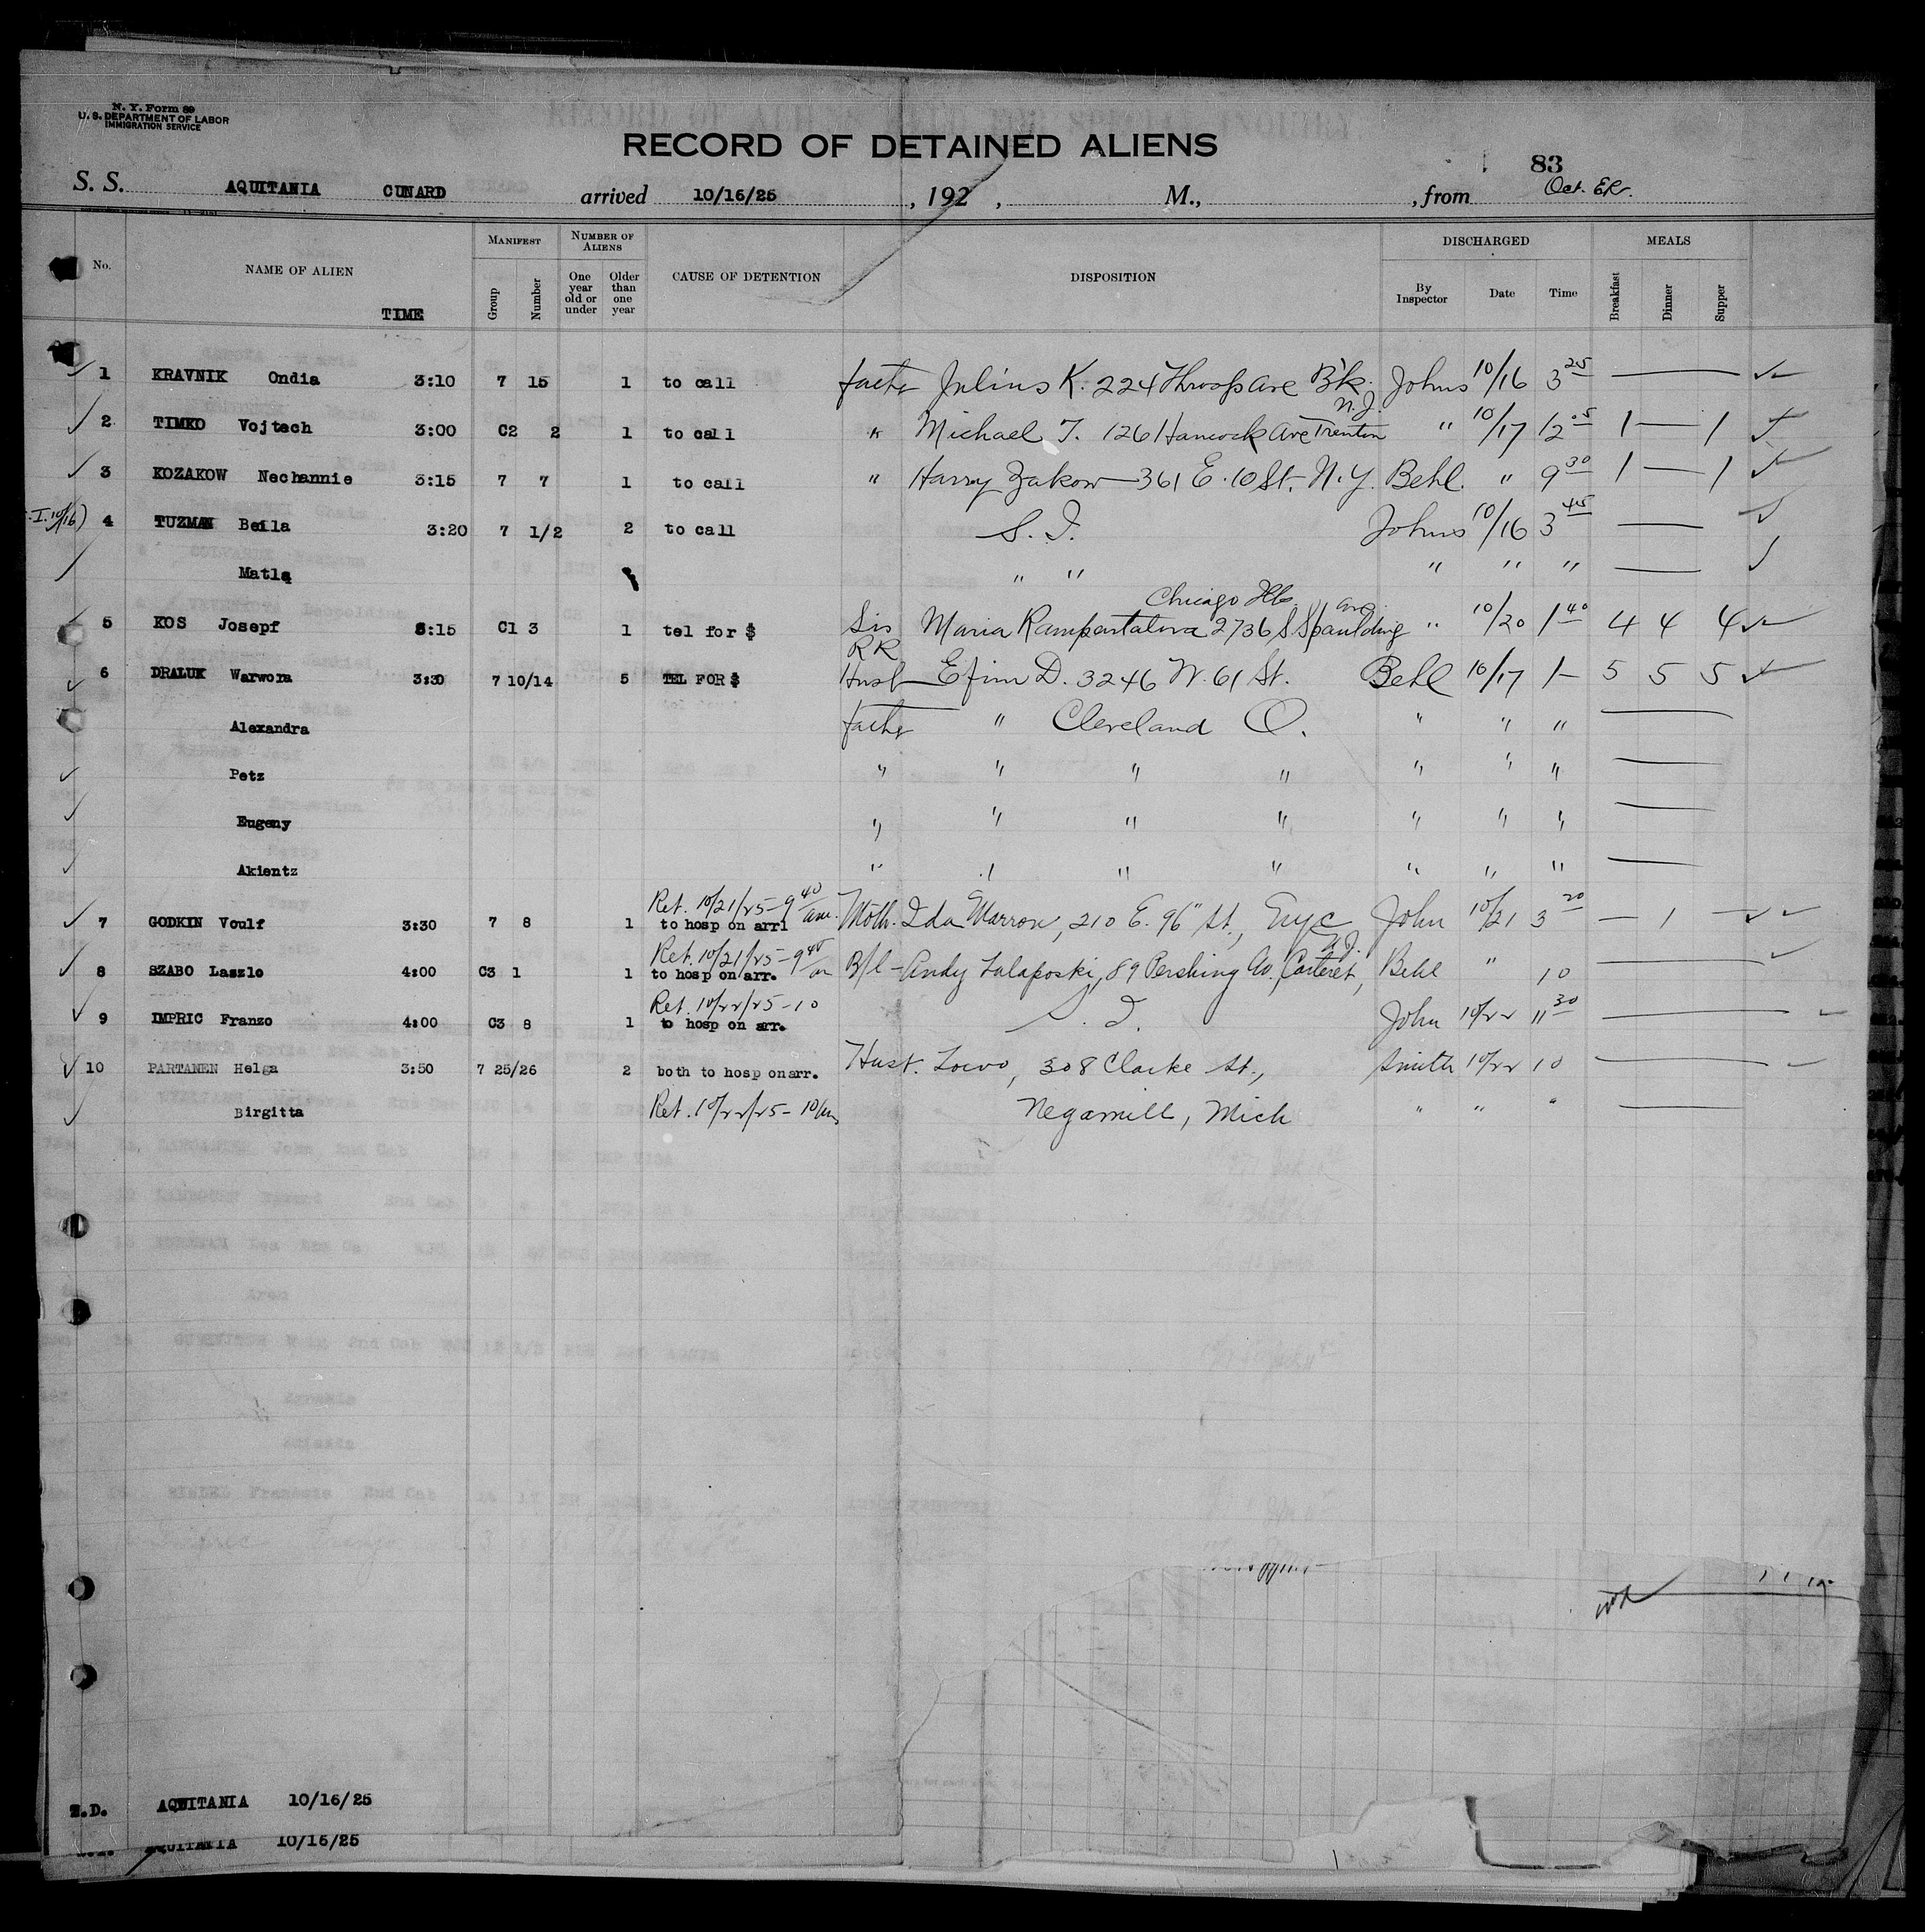 N. Y. Form 89
U. S. DEPARTMENT OF LABOR
IMMIGRATION SERVICE
RECORD OF DETAINED ALIENS
83
S. S. AQUITANIA CUNARD arrived 10/16/25 , 192 , M., , from Oct. ER.
No. NAME OF ALIEN TIME MANIFEST Group Number NUMBER OF ALIENS One year old or under Older than one year CAUSE OF DETENTION DISPOSITION DISCHARGED By Inspector Date Time MEALS Breakfast Dinner Supper
1 KRAVNIK Ondia 3:10 7 15 1 to call father Julius K. 224 Throop Ave B'k. Johns 10/16 3 25
N.J.
2 TIMKO Vojtech 3:00 C2 2 1 to call " Michael T. 126 Hancock Ave Trenton " 10/17 12 05 1 — 1
3 KOZAKOW Nechannie 3:15 7 7 1 to call " Harry Zakow — 361 E. 10 St. N.Y. Behl. " 9 30 1 — 1
I. 10/16) 4 TUZMAN Beila 3:20 7 1/2 2 to call S. I. Johns 10/16 3 45 —
Matla " " " " " —
Chicago Ills Ave.
5 KOS Josepf 3:15 C1 3 1 tel for $ Sis Maria 2736 S Spaulding " 10/20 1 40 4 4 4
RR
6 DRALUK Warwora 3:30 7 10/14 5 TEL FOR $ Husb — Efim D. 3246 W. 61 St. Behl 10/17 1 — 5 5 5
Alexandra father " Cleveland O. " " " —
Petz " " " " " " " —
Eugeny " " " " " " " —
Akientz " " " " " " " —
Ret. 10/21/25 - 9 40 am.
7 GODKIN Voulf 3:30 7 8 1 to hosp on arrl Moth. Ida Warrow, 210 E. 96" St., Nyc John 10/21 3 20 — 1 —
Ret. 10/21/25 - 9 40 am N.J.
8 SZABO Laszlo 4:00 C3 1 1 to hosp on arr. B/l - Andy Zalaposki, 89 Pershing Av., Carteret, Behl " 10 —
Ret. 10/22/25 - 10
9 IMPRIC Franzo 4:00 C3 8 1 to hosp on arr. S. I. John 10/22 11 30 —
10 PARTANEN Helga 3:50 7 25/26 2 both to hosp on arr. Husb. Toivo, 308 Clarke St., Smith 10/22 10 —
Birgitta Ret. 10/22/25 - 10 am Negaunee, Mich " " " —
AQUITANIA 10/16/25
AQUITANIA 10/16/25